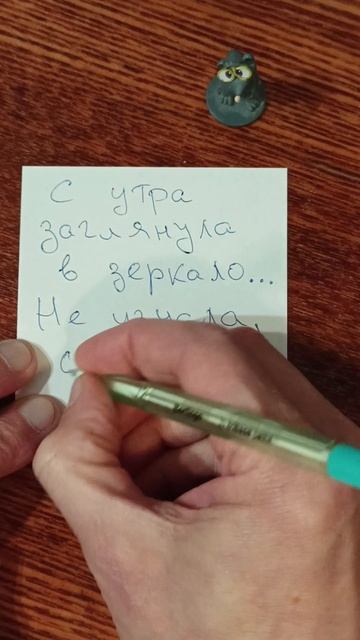 С утра
заглянула
в зеркало...
Не узнала,
с